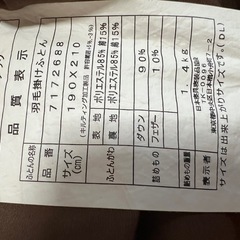 品質表示
ふとんの名称 羽毛掛けふとん
7172688
サイズ(cm) 190×210
(キルティング加工製品:許容範囲+5%-3%)
ふとんがわ 表地 ポリエステル85%綿15%
裏地 ポリエステル85%綿15%
詰めもの ダウン 90%
フェザー 10%
詰めもの重量 kg
表示者
サイズは出来上がりサイズです。(DL)